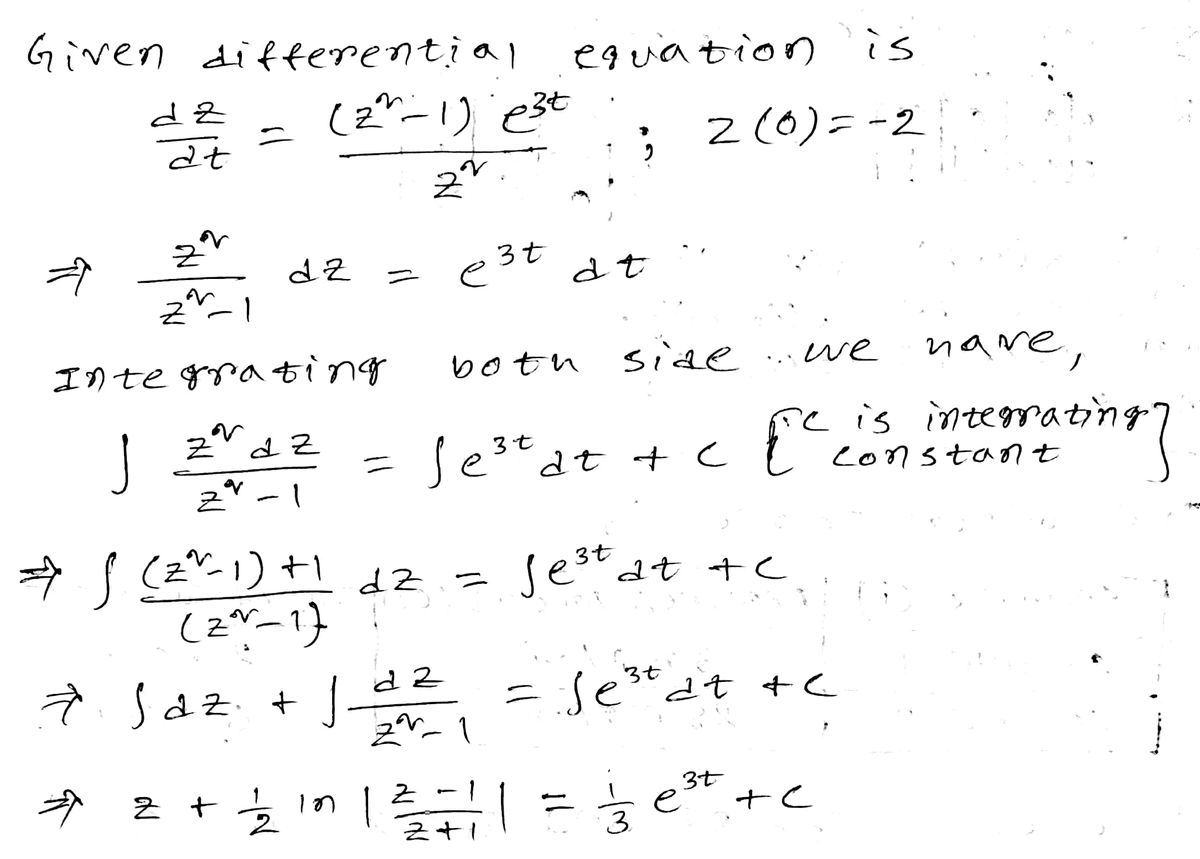 Given differential equation is
dz/dt = (z²-1) e^3t / z² ; z(0) = -2
⇒ z²/(z²-1) dz = e^3t dt
Integrating both side we have,
∫ z² dz/(z²-1) = ∫e^3t dt + c [c is integrating constant]
⇒ ∫ ((z²-1)+1)/(z²-1} dz = ∫e^3t dt + c
⇒ ∫dz + ∫ dz/(z²-1) = ∫e^3t dt + c
⇒ z + 1/2 ln |(z-1)/(z+1)| = 1/3 e^3t + c